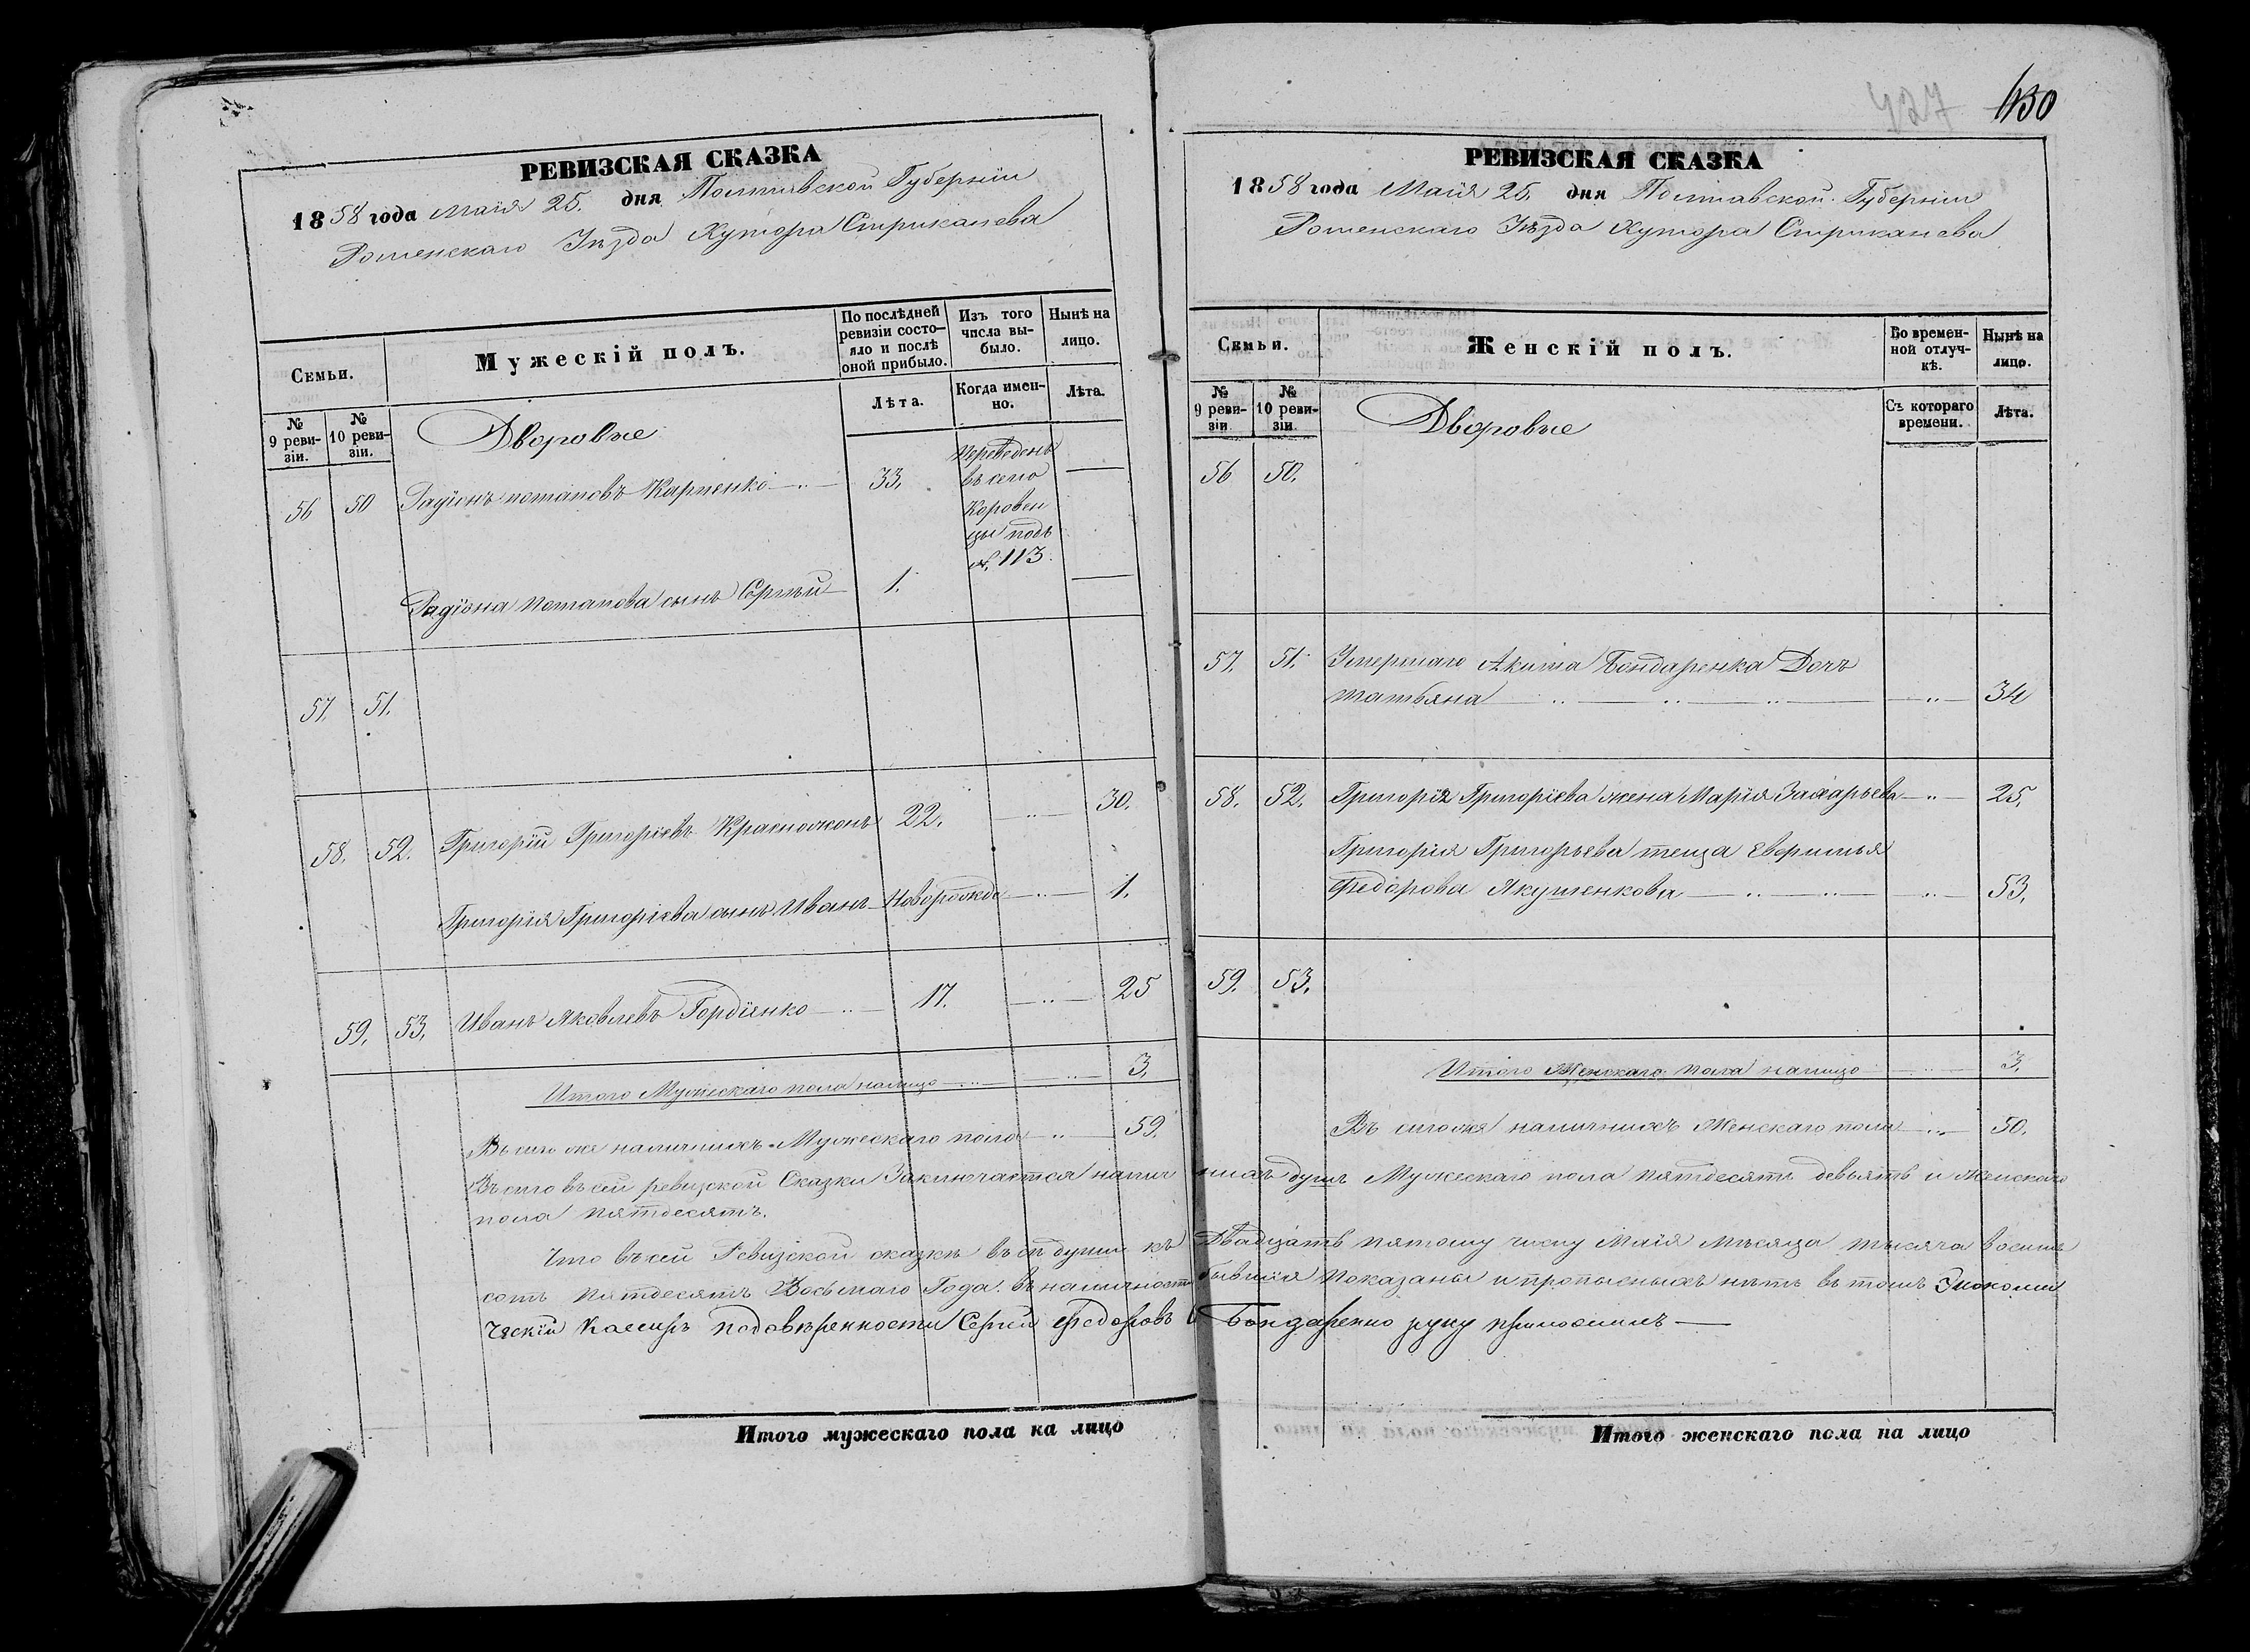 РЕВИЗСКАЯ СКАЗКА
1858 года Маія 25. дня Полтавской Губерніи
Роменскаго Уѣзда Хутора Стрикачева
Семьи.
Мужескій полъ.
По послѣдней ревизіи состояло и послѣ оной прибыло.
Изъ того числа выбыло.
Нынѣ на лицо.
№ 9 ревизіи.
№ 10 ревизіи.
Лѣта.
Когда именно.
Лѣта.
Дворовые
56 50 Радіонъ Потаповъ Карпенко 33. Переведенъ
въ село
Коровен
цы подъ
№ 113.
Радіона Потапова сынъ Сергѣй 1.
57. 51.
58. 52. Григорій Григоріевъ Красножонъ 22. 30.
Григорія Григоріева сынъ Иванъ Новорожде 1.
59. 53. Иванъ Яковлевъ Гордіенко 17. 25
Итого Мужескаго пола налицо 3.
Всего же наличныхъ Мужескаго пола 59.
427 430
РЕВИЗСКАЯ СКАЗКА
1858 года Маія 25. дня Полтавской Губерніи
Роменскаго Уѣзда Хутора Стрикачева
Семьи.
Женскій полъ.
Во временной отлучкѣ.
Нынѣ на лицо.
№ 9 ревизіи.
№ 10 ревизіи.
Съ котораго времени.
Лѣта.
Дворовые
56 50.
57. 51. Умершаго Акима Бондаренка Дочь
Татьяна 34
58. 52. Григорія Григоріева жена Марія Захарьева 25.
Григорія Григорьева теща Евфимья
Федорова Якушенкова 53.
59. 53.
Итого Женскаго пола налицо 3.
Всего же наличныхъ Женскаго пола 50.
Всего въ сей ревизской Сказки Заключается наличныхъ душъ Мужескаго пола пятдесятъ девьять и Женскаго
пола пятдесятъ.
Что въ сей Ревизской сказкѣ всѣ души къ Двадцать пятому числу Маія мѣсяца тысяча восемь
сотъ пятдесятъ Восьмаго Года въ наличности бывшія показаны и прописныхъ нѣтъ въ томъ Экономи
ческій Кассиръ подовѣренности Сергѣй Федоровъ Бондаренко руку приложилъ
Итого мужескаго пола на лицо
Итого женскаго пола на лицо